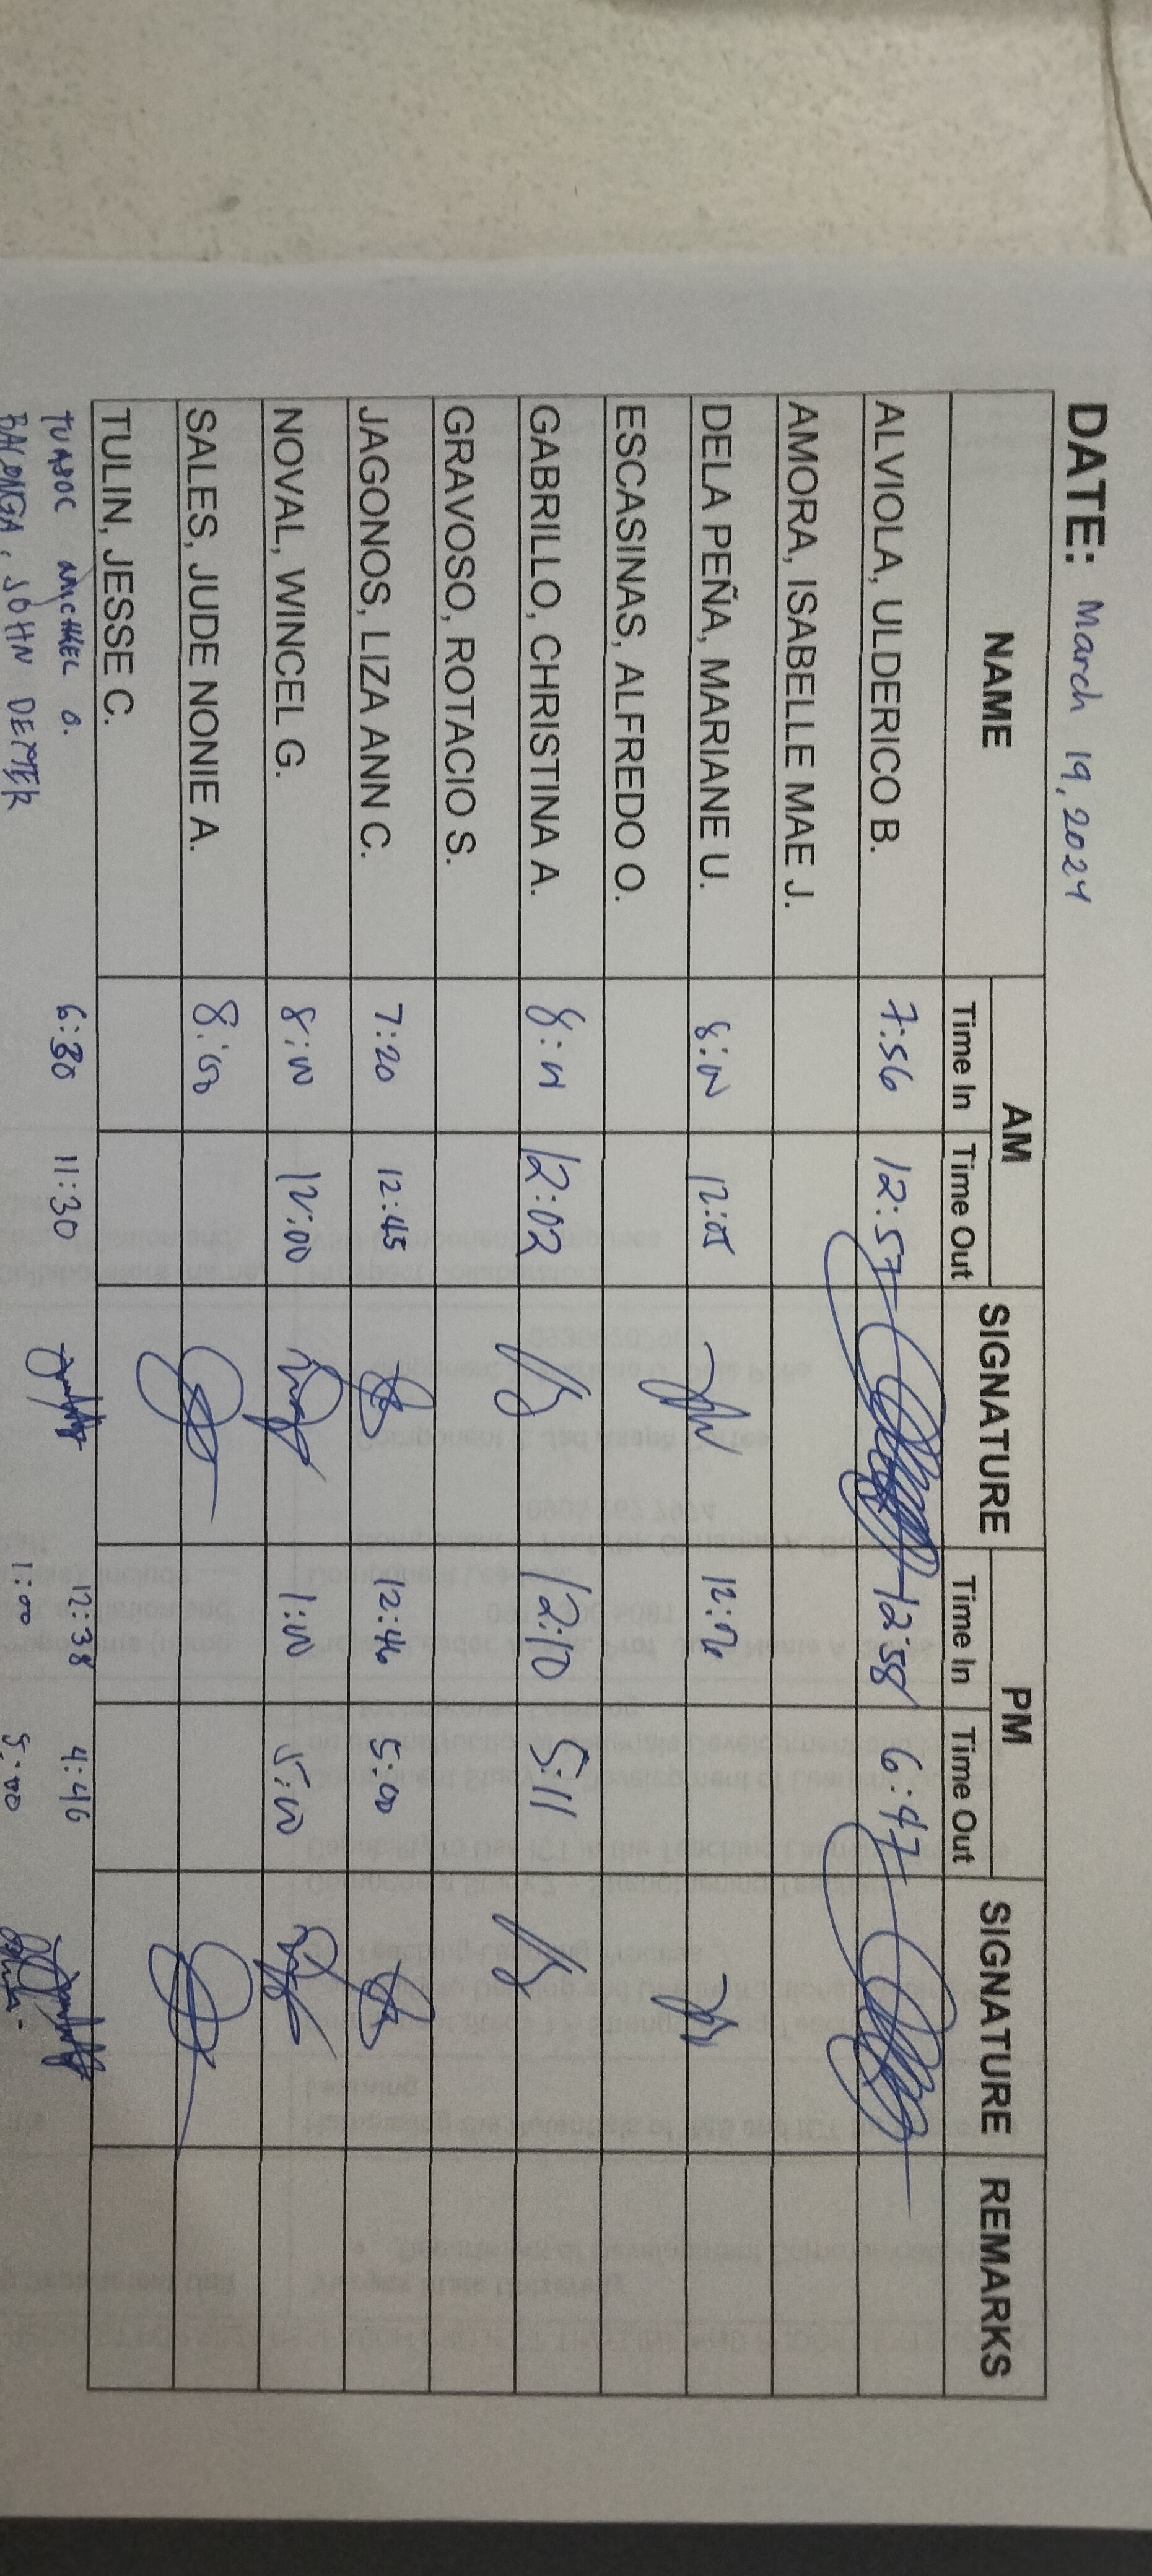 DATE: March 19, 2024
NAME AM SIGNATURE PM SIGNATURE REMARKS
Time In Time Out Time In Time Out
ALVIOLA, ULDERICO B. 7:56 12:57 12:58 6:47
AMORA, ISABELLE MAE J.
DELA PEÑA, MARIANE U. 8:00 12:05 12:06
ESCASINAS, ALFREDO O.
GABRILLO, CHRISTINA A. 12:02 12:10 5:11
GRAVOSO, ROTACIO S.
JAGONOS, LIZA ANN C. 7:20 12:45 12:46 5:00
NOVAL, WINCEL G. 8:00 12:00 1:00 5:00
SALES, JUDE NONIE A. 8:00
TULIN, JESSE C.
MICHAEL O. 6:30 11:30 12:38 4:46
BALONGA, JOHN DEXTER 1:00 5:00